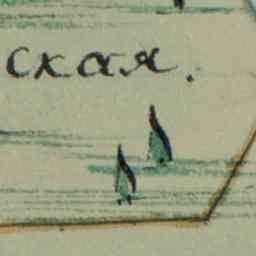 ская.